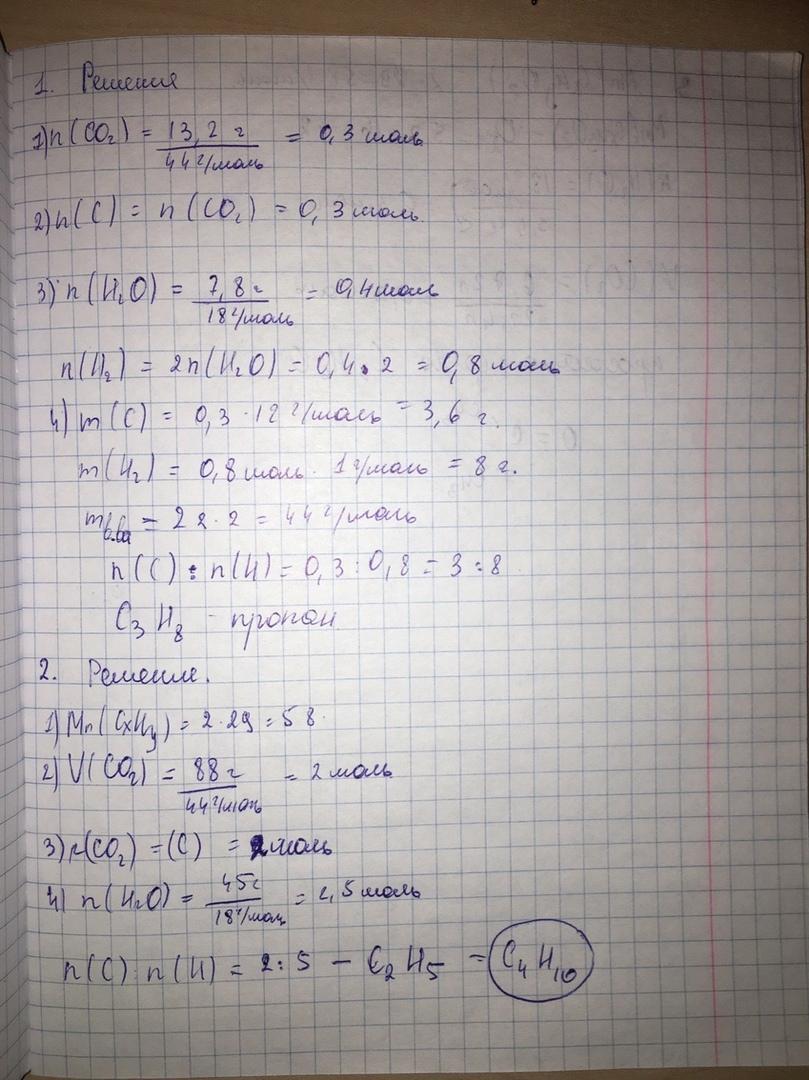 1. Решения
1) n(CO₂) = 13,2 г / 44 г/моль = 0,3 моль
2) n(C) = n(CO₂) = 0,3 моль
3) n(H₂O) = 7,8 г / 18 г/моль = 0,4 моль
n(H₂) = 2n(H₂O) = 0,4 · 2 = 0,8 моль
4) m(C) = 0,3 · 12 г/моль = 3,6 г.
m(H₂) = 0,8 моль · 1 г/моль = 8 г.
m в.ва = 22 · 2 = 44 г/моль
n(C) : n(H) = 0,3 : 0,8 = 3 : 8
C₃H₈ - пропан
2. Решение.
1) Mr(CxHy) = 2 · 29 = 58.
2) V(CO₂) = 88 г / 44 г/моль = 2 моль
3) n(CO₂) = (C) = 2 моль
4) n(H₂O) = 45 г / 18 г/моль = 2,5 моль
n(C) n(H) = 2 : 5 – C₂H₅ = C₄H₁₀